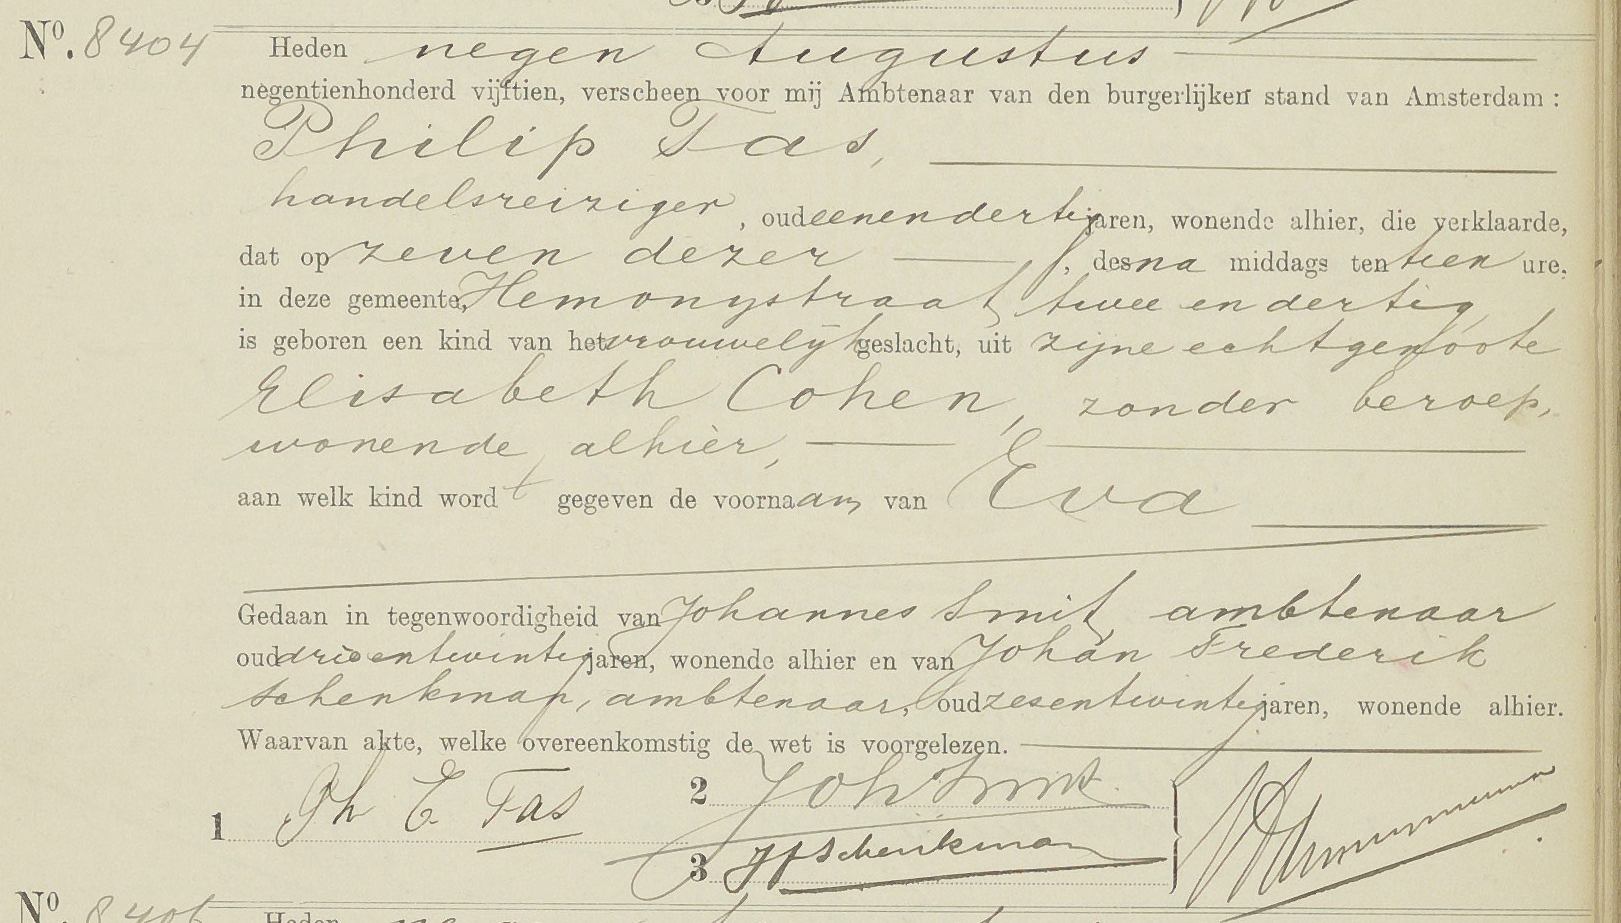 Nº. 8404
Heden negen Augustus
negentienhonderd vijftien, verscheen voor mij Ambtenaar van den burgerlijken stand van Amsterdam:
Philip Tas,
handelsreiziger, oud eenendertig jaren, wonende alhier, die verklaarde,
dat op zeven dezer, des na middags ten tien ure,
in deze gemeente, Hemonystraat twee en dertig,
is geboren een kind van het vrouwelijk geslacht, uit zijne echtgenoote
Elisabeth Cohen, zonder beroep,
wonende alhier,
aan welk kind wordt gegeven de voornaam van Eva
Gedaan in tegenwoordigheid van Johannes Smit, ambtenaar
oud drieentwintig jaren, wonende alhier en van Johan Frederik
Schenkman, ambtenaar, oud zesentwintig jaren, wonende alhier.
Waarvan akte, welke overeenkomstig de wet is voorgelezen.
1 Ph E. Tas
2 Joh Smit
3 JF Schenkman
Nº.
Heden